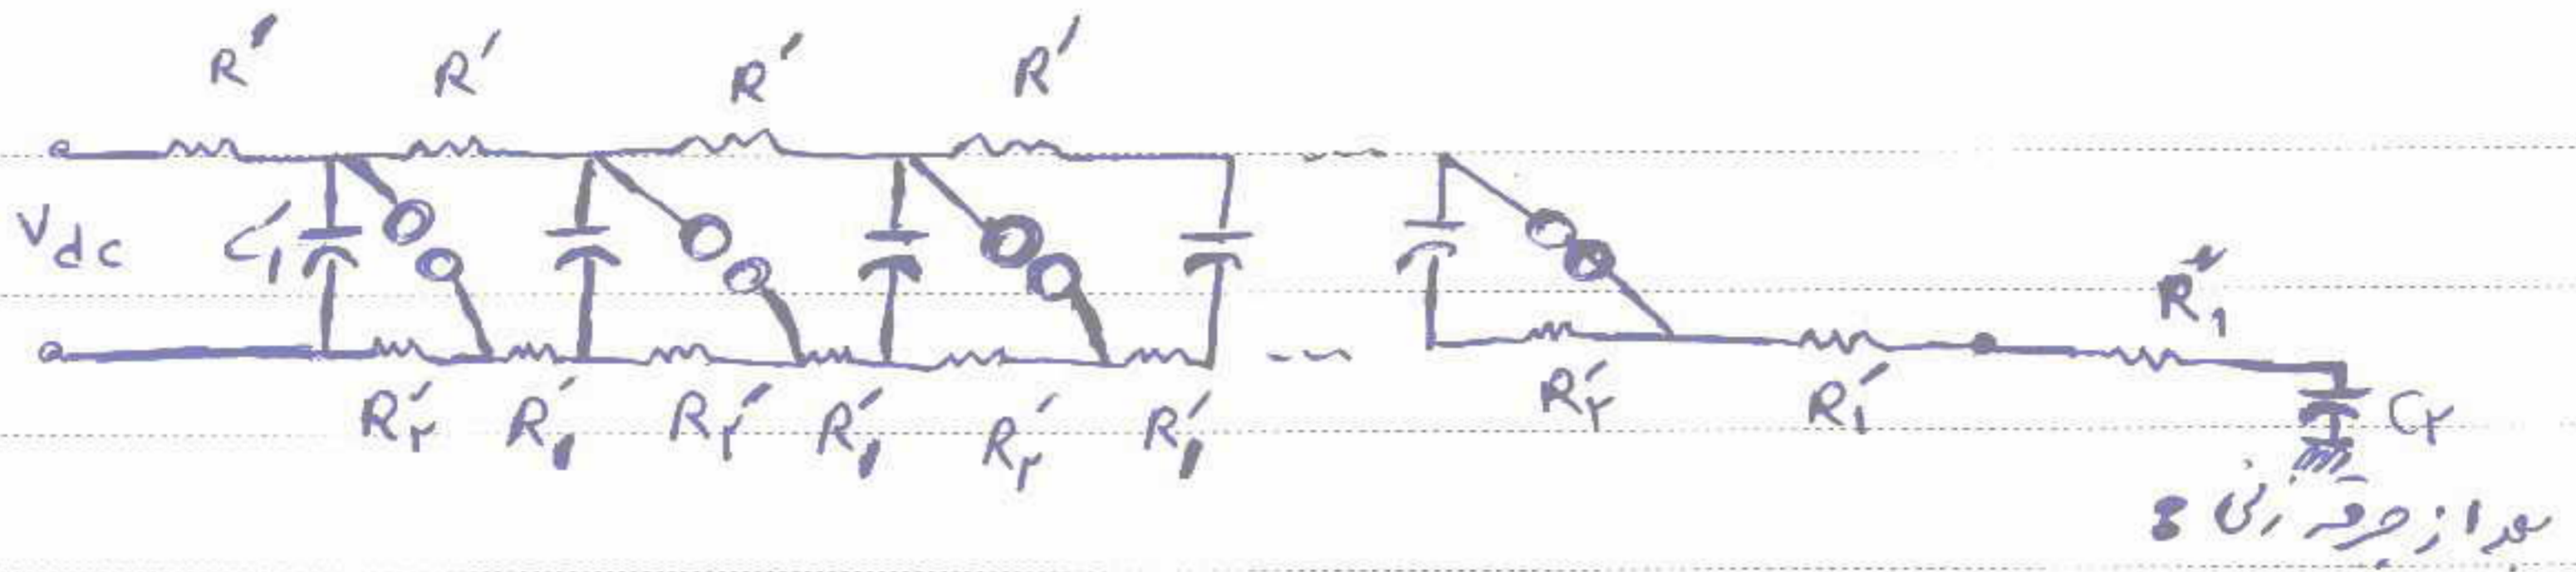 R' R' R' R'
Vdc C'۱ R"۱
R'۲ R'۱ R'۲ R'۱ R'۲ R'۱ R'۲ R'۱ C۲
بعد از جرقه زنی :